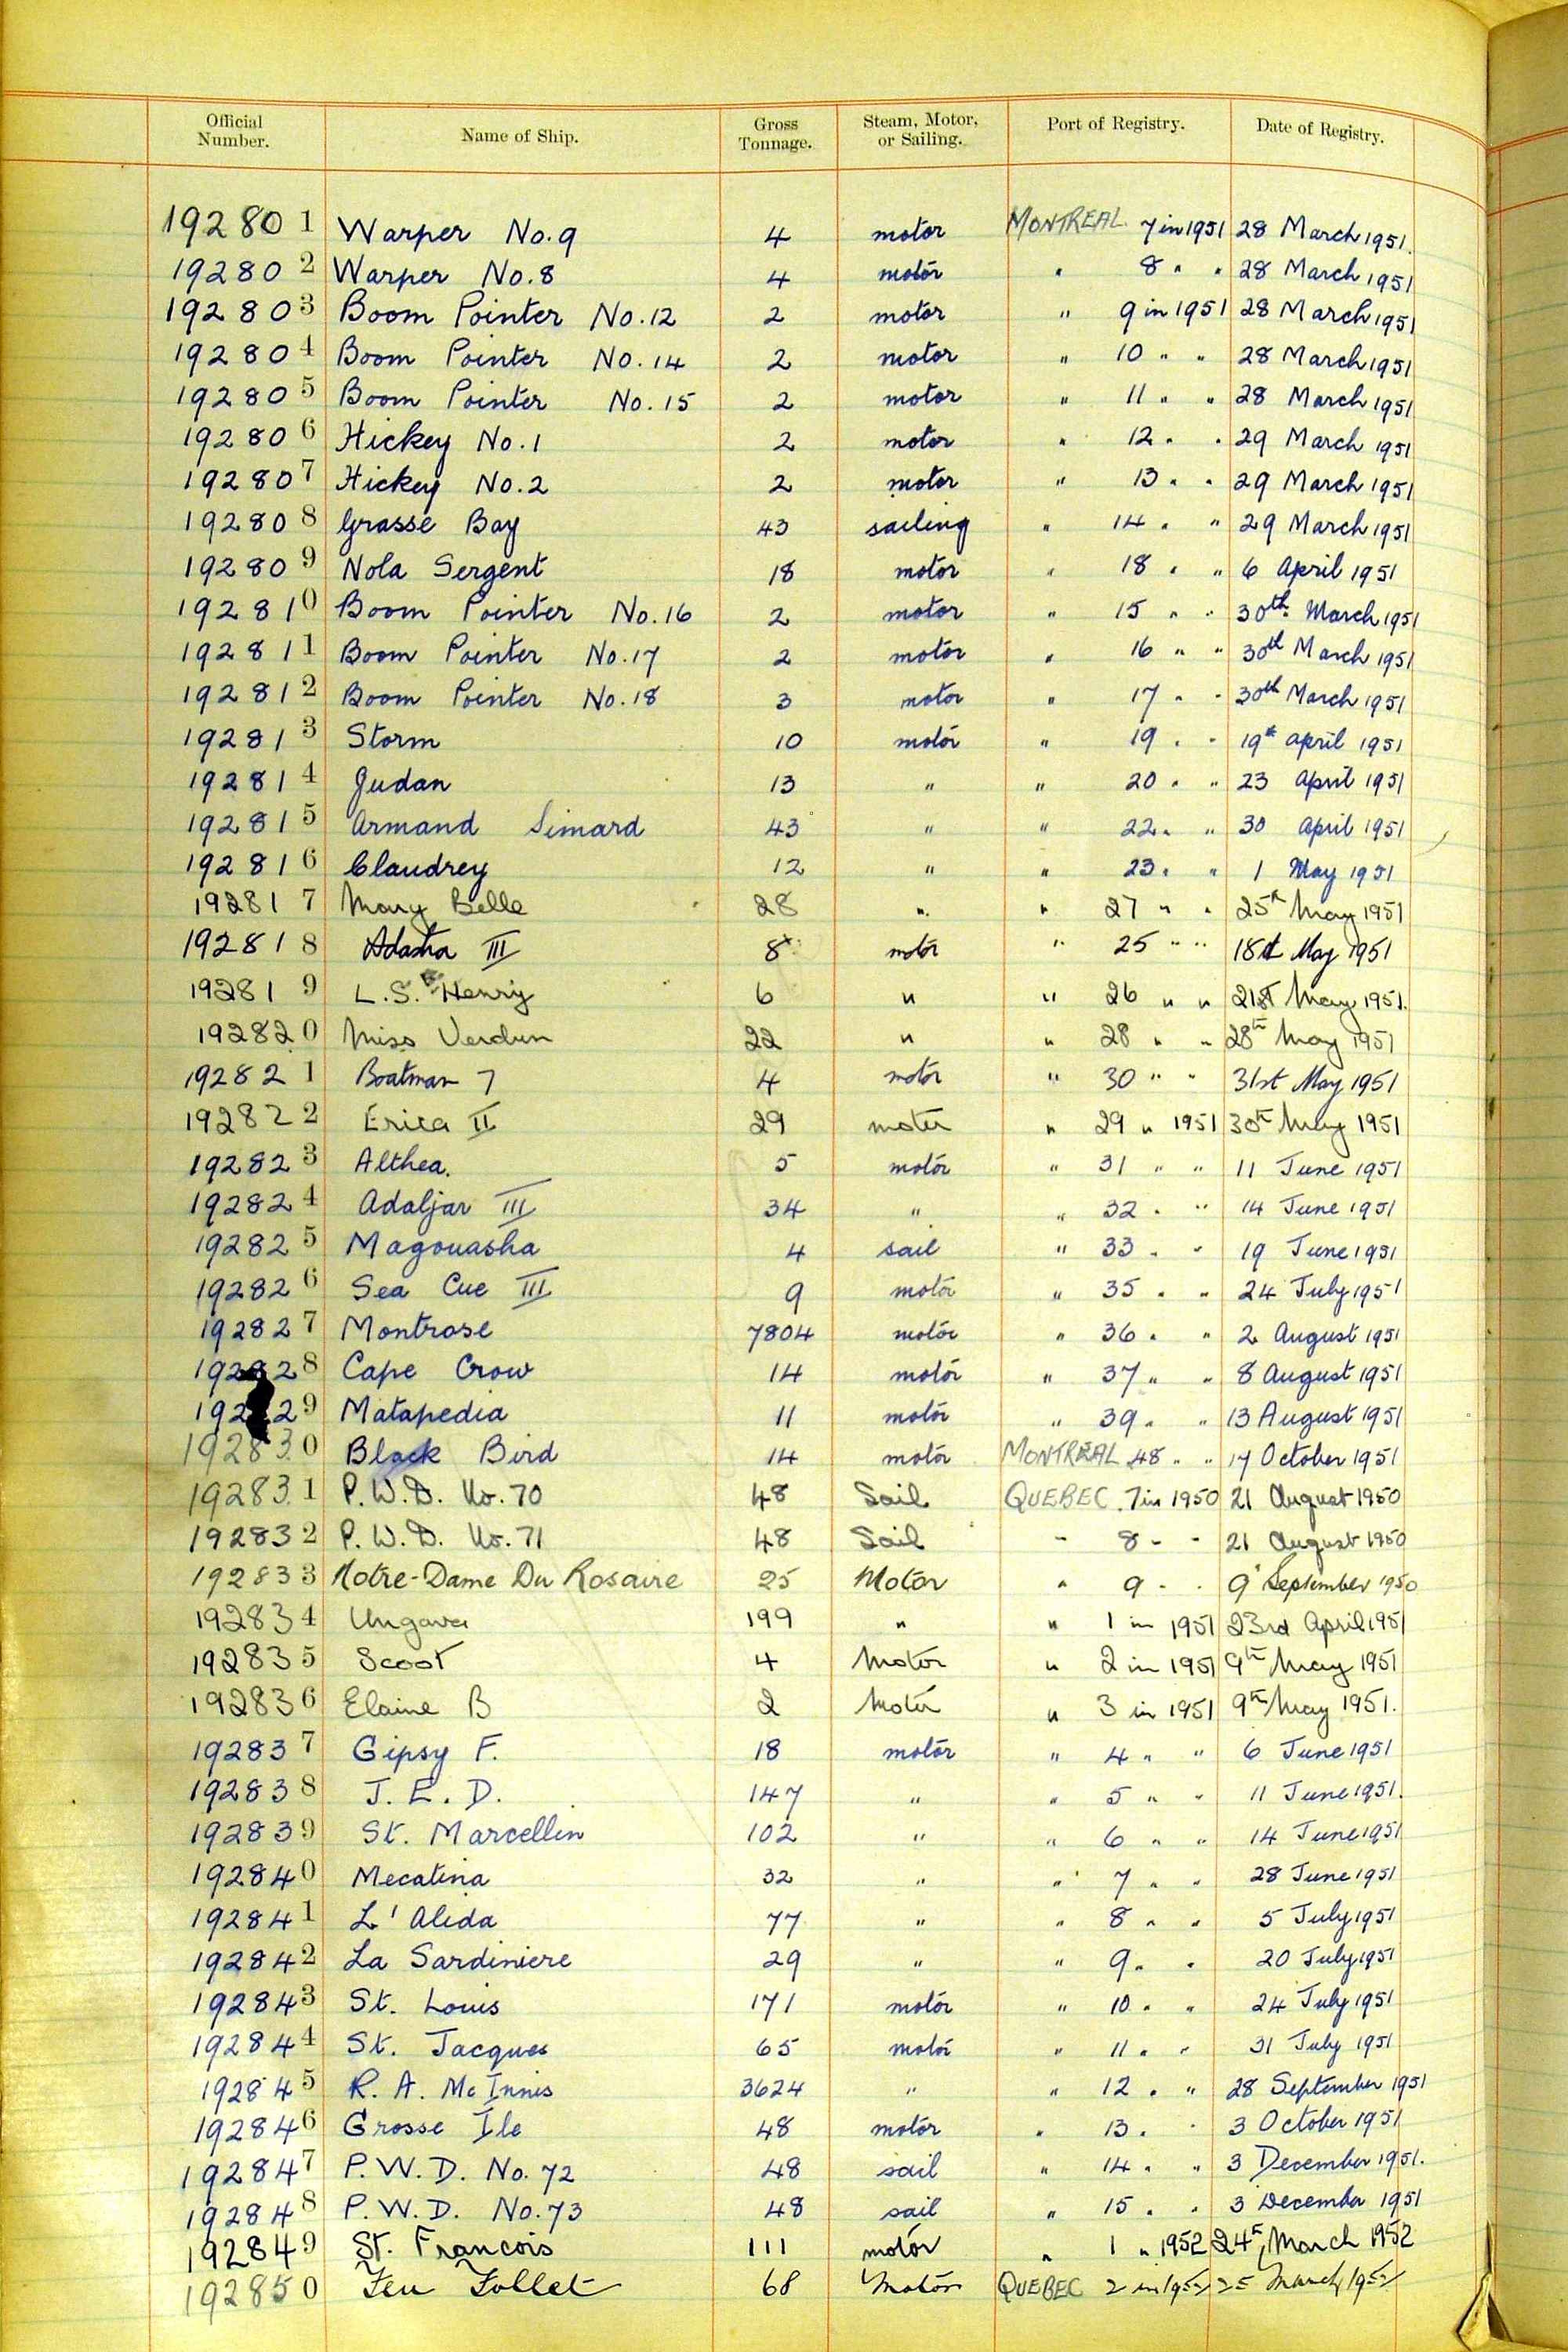 Official Number. Name of Ship. Gross Tonnage. Steam, Motor, or Sailing. Port of Registry. Date of Registry.
192801 Warper No.9 4 motor MONTREAL 7 in 1951 28 March 1951.
192802 Warper No.8 4 motor " 8 " " 28 March 1951
192803 Boom Pointer No.12 2 motor " 9 in 1951 28 March 1951
192804 Boom Pointer No.14 2 motor " 10 " " 28 March 1951
192805 Boom Pointer No.15 2 motor " 11 " " 28 March 1951
192806 Hickey No.1 2 motor " 12 " " 29 March 1951
192807 Hickey No.2 2 motor " 13 " " 29 March 1951
192808 Grasse Bay 43 sailing " 14 " " 29 March 1951
192809 Nola Sergent 18 motor " 18 " " 6 April 1951
192810 Boom Pointer No.16 2 motor " 15 " " 30th March 1951
192811 Boom Pointer No.17 2 motor " 16 " " 30th March 1951
192812 Boom Pointer No.18 3 motor " 17 " " 30th March 1951
192813 Storm 10 motor " 19 " " 19th April 1951
192814 Judan 13 " " 20 " " 23 April 1951
192815 Armand Simard 43 " " 22 " " 30 April 1951
192816 Claudrey 12 " " 23 " " 1 May 1951
192817 Mary Belle 28 " " 27 " " 25th May 1951
192818 III 8 motor " 25 " " 18th May 1951
192819 L.S. Henry 6 " " 26 " " 21st May 1951.
192820 Miss Verdun 22 " " 28 " " 28th May 1951
192821 Boatman 7 4 motor " 30 " " 31st May 1951
192822 Erica II 29 motor " 29 " 1951 30th May 1951
192823 Althea. 5 motor " 31 " " 11 June 1951
192824 Adaljar III 34 " " 32 " " 14 June 1951
192825 Magouasha 4 sail " 33 " " 19 June 1951
192826 Sea Cue III 9 motor " 35 " " 24 July 1951
192827 Montrose 7804 motor " 36 " " 2 August 1951
192828 Cape Crow 14 motor " 37 " " 8 August 1951
192829 Matapedia 11 motor " 39 " " 13 August 1951
192830 Black Bird 14 motor MONTREAL 48 " " 17 October 1951
192831 P.W.D. No.70 48 Sail QUEBEC 7 in 1950 21 August 1950
192832 P.W.D. No.71 48 Sail " 8 " " 21 August 1950
192833 Notre-Dame Du Rosaire 25 Motor " 9 " " 9 September 1950
192834 Ungava 199 " " 1 in 1951 23rd April 1951
192835 Scoot 4 Motor " 2 in 1951 9th May 1951
192836 Elaine B 2 Motor " 3 in 1951 9th May 1951.
192837 Gipsy F. 18 motor " 4 " " 6 June 1951
192838 J.E.D. 147 " " 5 " " 11 June 1951.
192839 St. Marcellin 102 " " 6 " " 14 June 1951
192840 Mecatina 32 " " 7 " " 28 June 1951
192841 L'Alida 77 " " 8 " " 5 July 1951
192842 La Sardiniere 29 " " 9 " " 20 July 1951
192843 St. Louis 171 motor " 10 " " 24 July 1951
192844 St. Jacques 65 motor " 11 " " 31 July 1951
192845 R. A. McInnis 3624 " " 12 " " 28 September 1951
192846 Grosse Ile 48 motor " 13 " " 3 October 1951
192847 P.W.D. No.72 48 sail " 14 " " 3 December 1951.
192848 P.W.D. No.73 48 sail " 15 " " 3 December 1951
192849 St. Francois 111 motor " 1 " 1952 24th March 1952
192850 Feu Follet 68 Motor QUEBEC 2 in 1952 25 March 1952